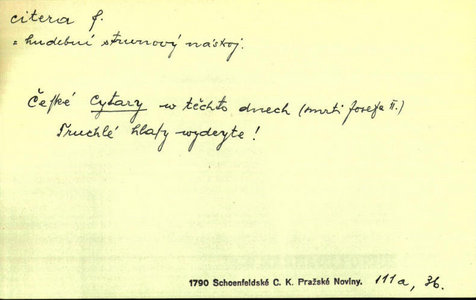 citera f.
= hudební strunový nástroj.
Čeſké Cytary w těchto dnech (smrti Josefa II.)
Truchlé hlaſy wydeyte !
1790 Schoenfeldské C. K. Pražské Noviny. 111a, 36.